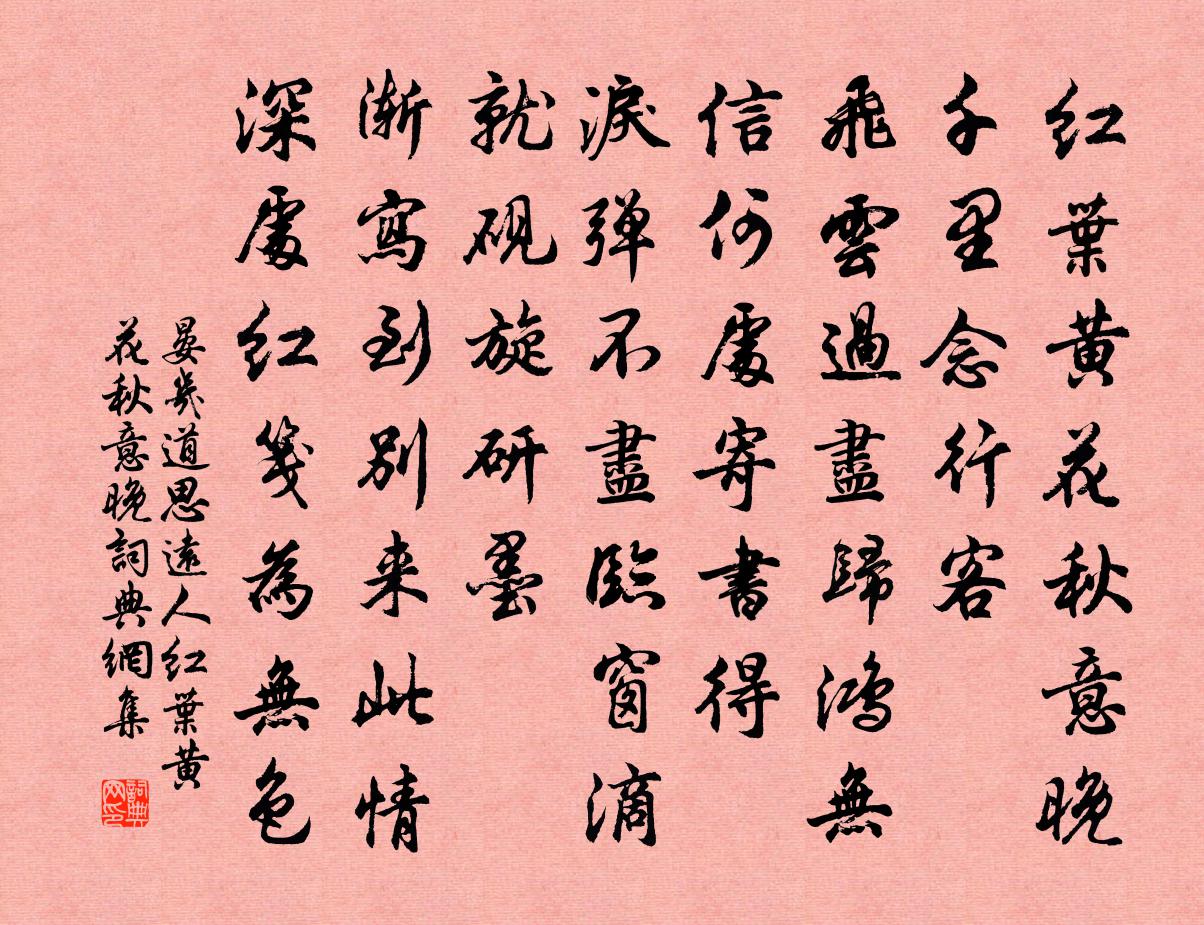 紅葉黃花秋意晚
千里念行客
飛雲過盡歸鴻無
信何處寄書得
淚彈不盡臨窗滴
就硯旋研墨
漸寫到別来此情
深處紅箋為無色
晏幾道思遠人紅葉黃
花秋意晚詞典網集
詞典網印